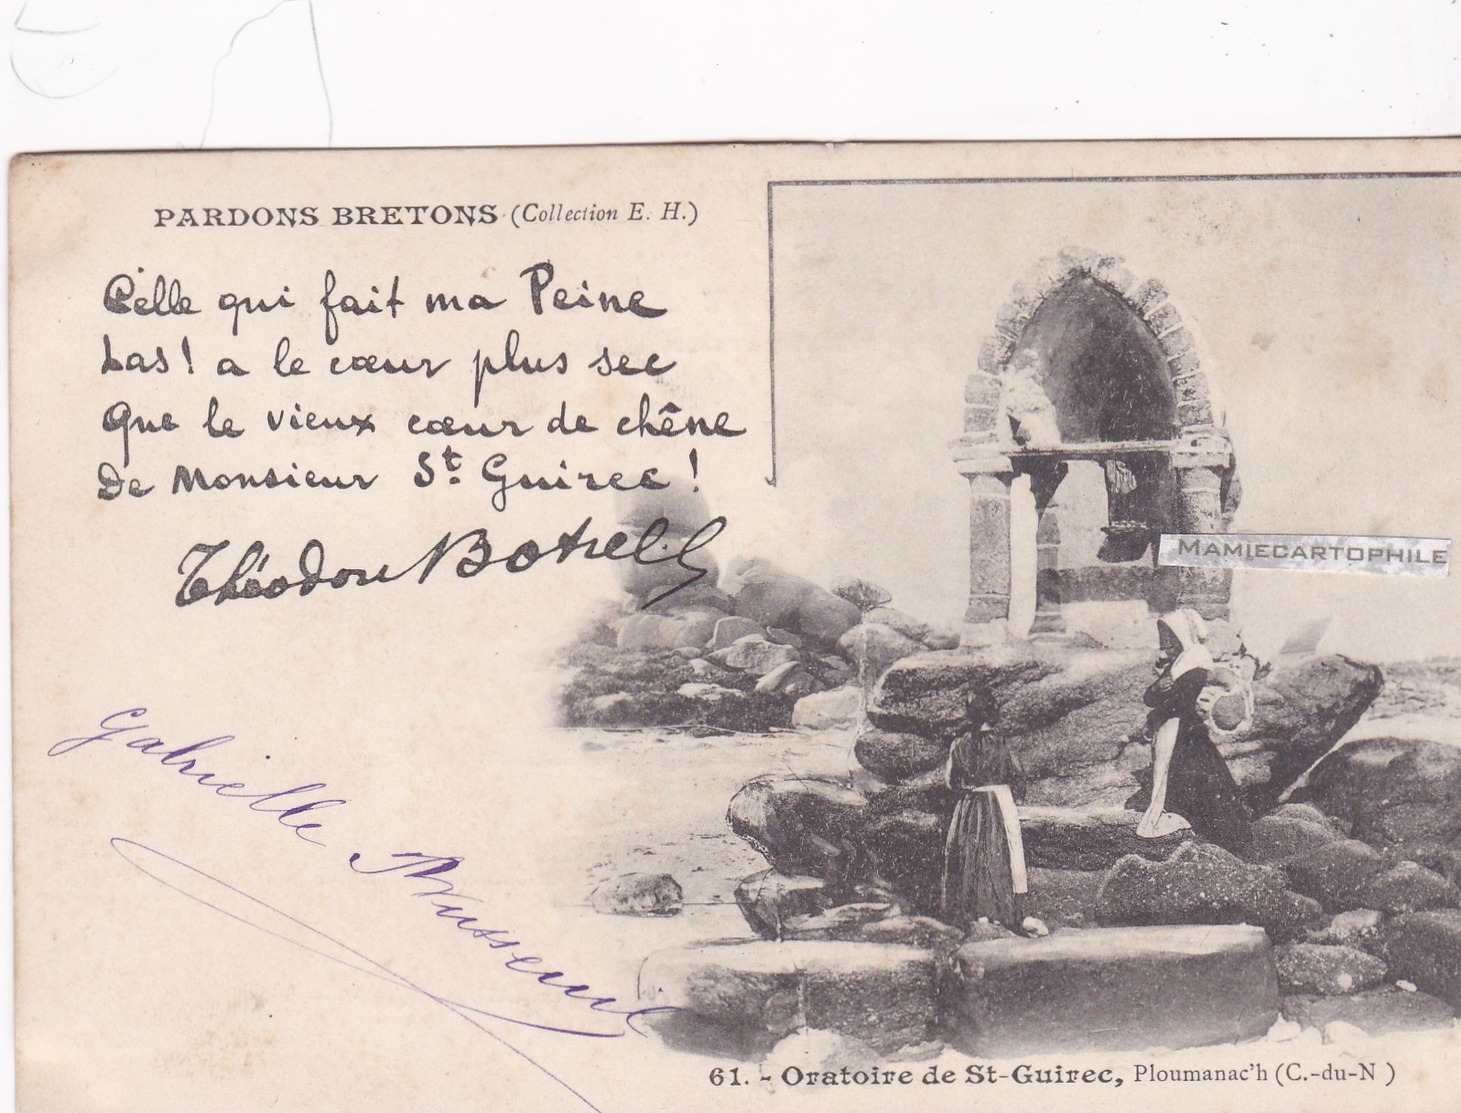 PARDONS BRETONS (Collection E. H.)
Celle qui fait ma Peine
Las! a le cœur plus sec
Que le vieux cœur de chêne
De Monsieur St. Guirec!
Théodore Botrel
Gabrielle
MAMIECARTOPHILE
61. - Oratoire de St-Guirec, Ploumanac'h (C.-du-N )